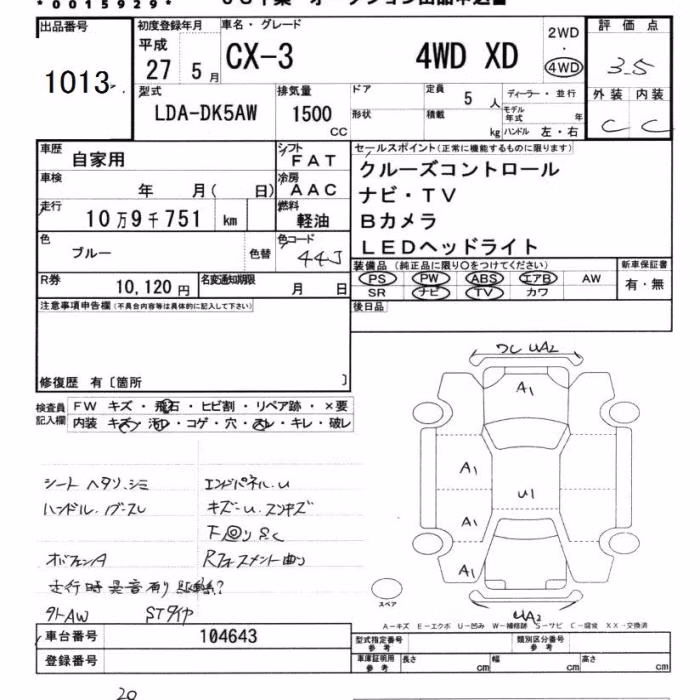 *0015929*
出品番号
1013
初度登録年月
平成
27 5月
車名・グレード
CX-3 4WD XD
2WD
・
4WD
評価点
3.5
外装 内装
C C
型式
LDA-DK5AW
排気量
1500
CC
ドア
形状
定員
5人
積載
kg
ディーラー・並行
モデル年式 年
ハンドル 左・右
車歴
自家用
シフト
FAT
車検
年 月( 日)
冷房
AAC
走行
10万9千751 km
燃料
軽油
色
ブルー
色替
色コード
44J
R券
10,120円
名変通知期限
月 日
セールスポイント(正常に機能するものに限ります)
クルーズコントロール
ナビ・TV
Bカメラ
LEDヘッドライト
装備品(純正品に限り○をつけてください)
PS PW ABS エアB AW
SR ナビ TV カワ
新車保証書
有・無
後日品
注意事項申告欄(不具合内容等は具体的に記入して下さい)
修復歴 有〔箇所 〕
検査員記入欄
FW キズ・飛石・ヒビ割・リペア跡・×要
内装 キズ・汚れ・コゲ・穴・スレ・キレ・破レ
シート ヘタリ.シミ
ハンドル.
エンドパネル.U
キズ-U.スリキズ
下回りS.C
走行時異音有り
外AW STタイヤ
UA2
A1
A1
U1
A1
A1
UA2
スペア
A-キズ E-エクボ U-凹み W-補修跡 S-サビ C-腐食 XX-交換済
車台番号
104643
登録番号
型式指定番号
参考
類別区分番号
参考
車庫証明用
参考
長さ cm
幅 cm
高さ cm
20